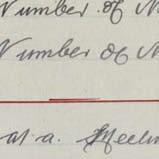 Number of M
Number of M
at a Meetin